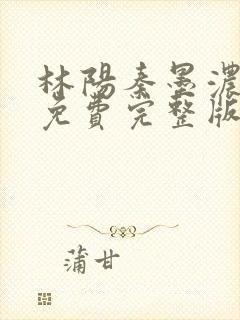 林陽秦墨濃
免費完整版
蒲甘